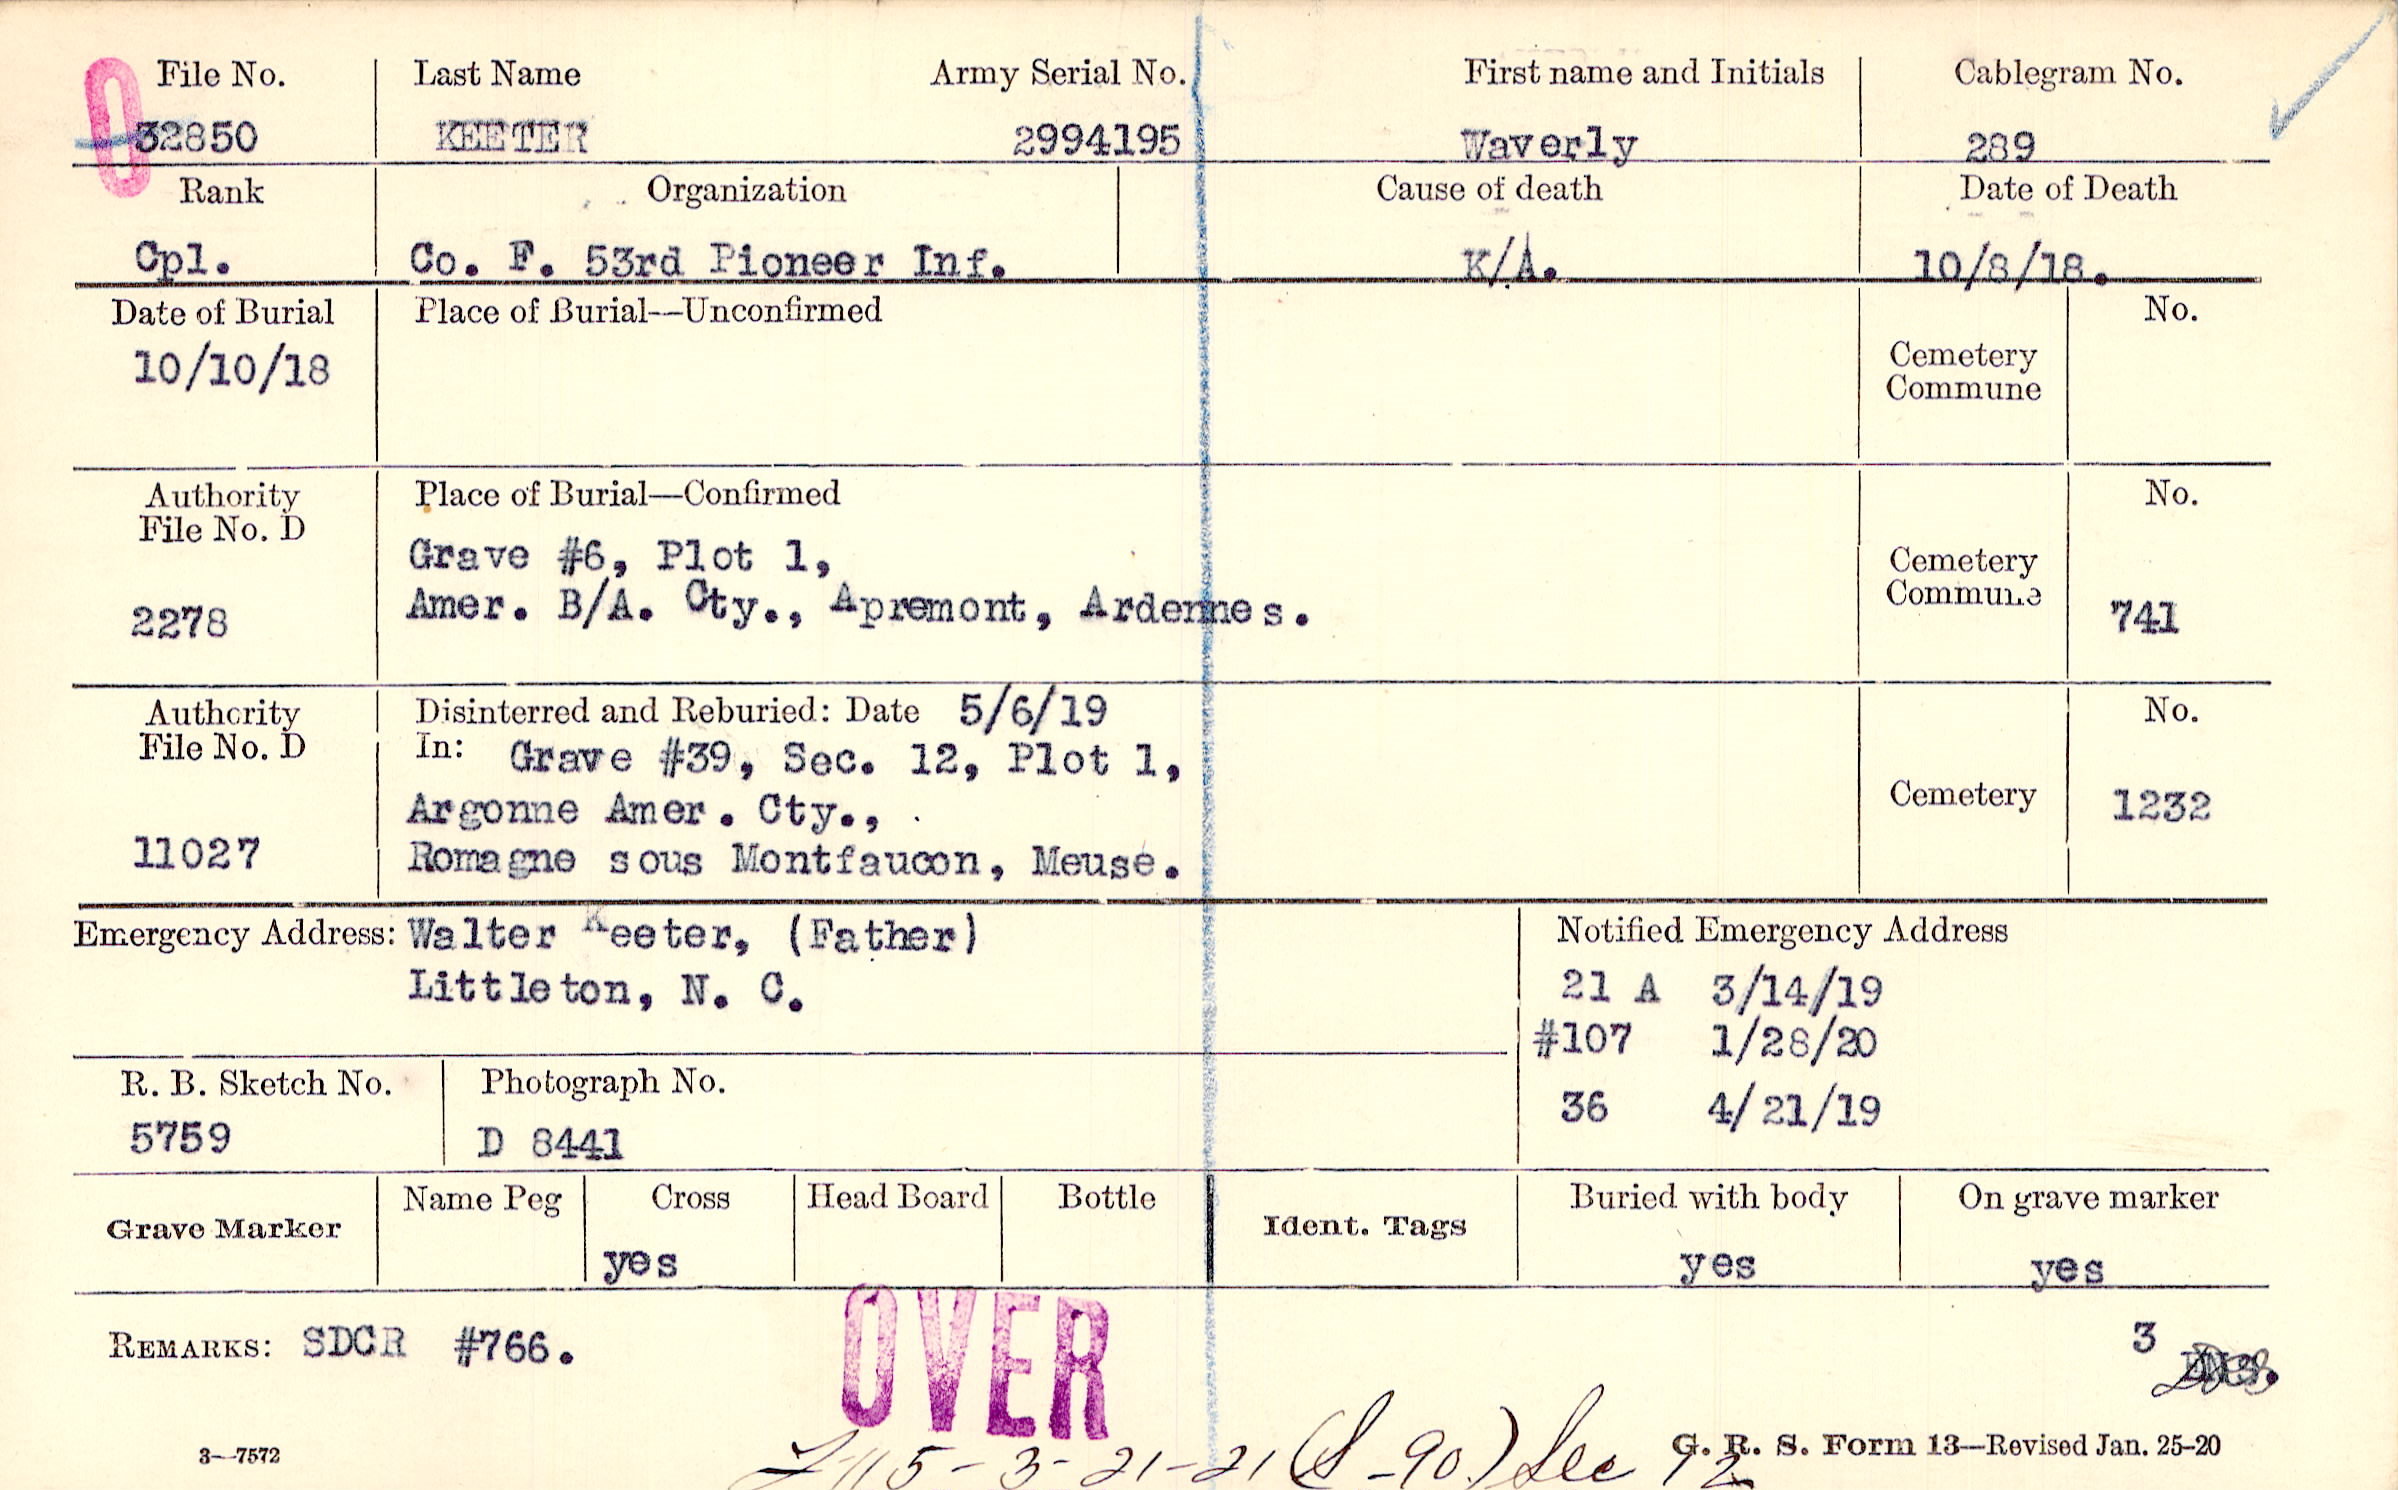 0
File No. Last Name Army Serial No. First name and Initials Cablegram No.
32850 KEETER 2994195 Waverly 289
Rank Organization Cause of death Date of Death
Cpl. Co. F. 53rd Pioneer Inf. K/A. 10/8/18.
Date of Burial Place of Burial—Unconfirmed No.
10/10/18
Cemetery
Commune
Authority Place of Burial—Confirmed No.
File No. D
Grave #6, Plot 1,
Cemetery
Commune
2278 Amer. B/A. Cty., Apremont, Ardennes. 741
Authority Disinterred and Reburied: Date 5/6/19 No.
File No. D In: Grave #39, Sec. 12, Plot 1,
Argonne Amer. Cty., Cemetery 1232
11027 Romagne sous Montfaucon, Meuse.
Emergency Address: Walter Keeter, (Father) Notified Emergency Address
Littleton, N. C. 21 A 3/14/19
#107 1/28/20
36 4/21/19
R. B. Sketch No. Photograph No.
5759 D 8441
Grave Marker Name Peg Cross Head Board Bottle Ident. Tags Buried with body On grave marker
yes yes yes
REMARKS: SDCR #766. 3
OVER
3—7572 G. R. S. Form 13—Revised Jan. 25-20
5-3-21-21 (S-90) Sec 12